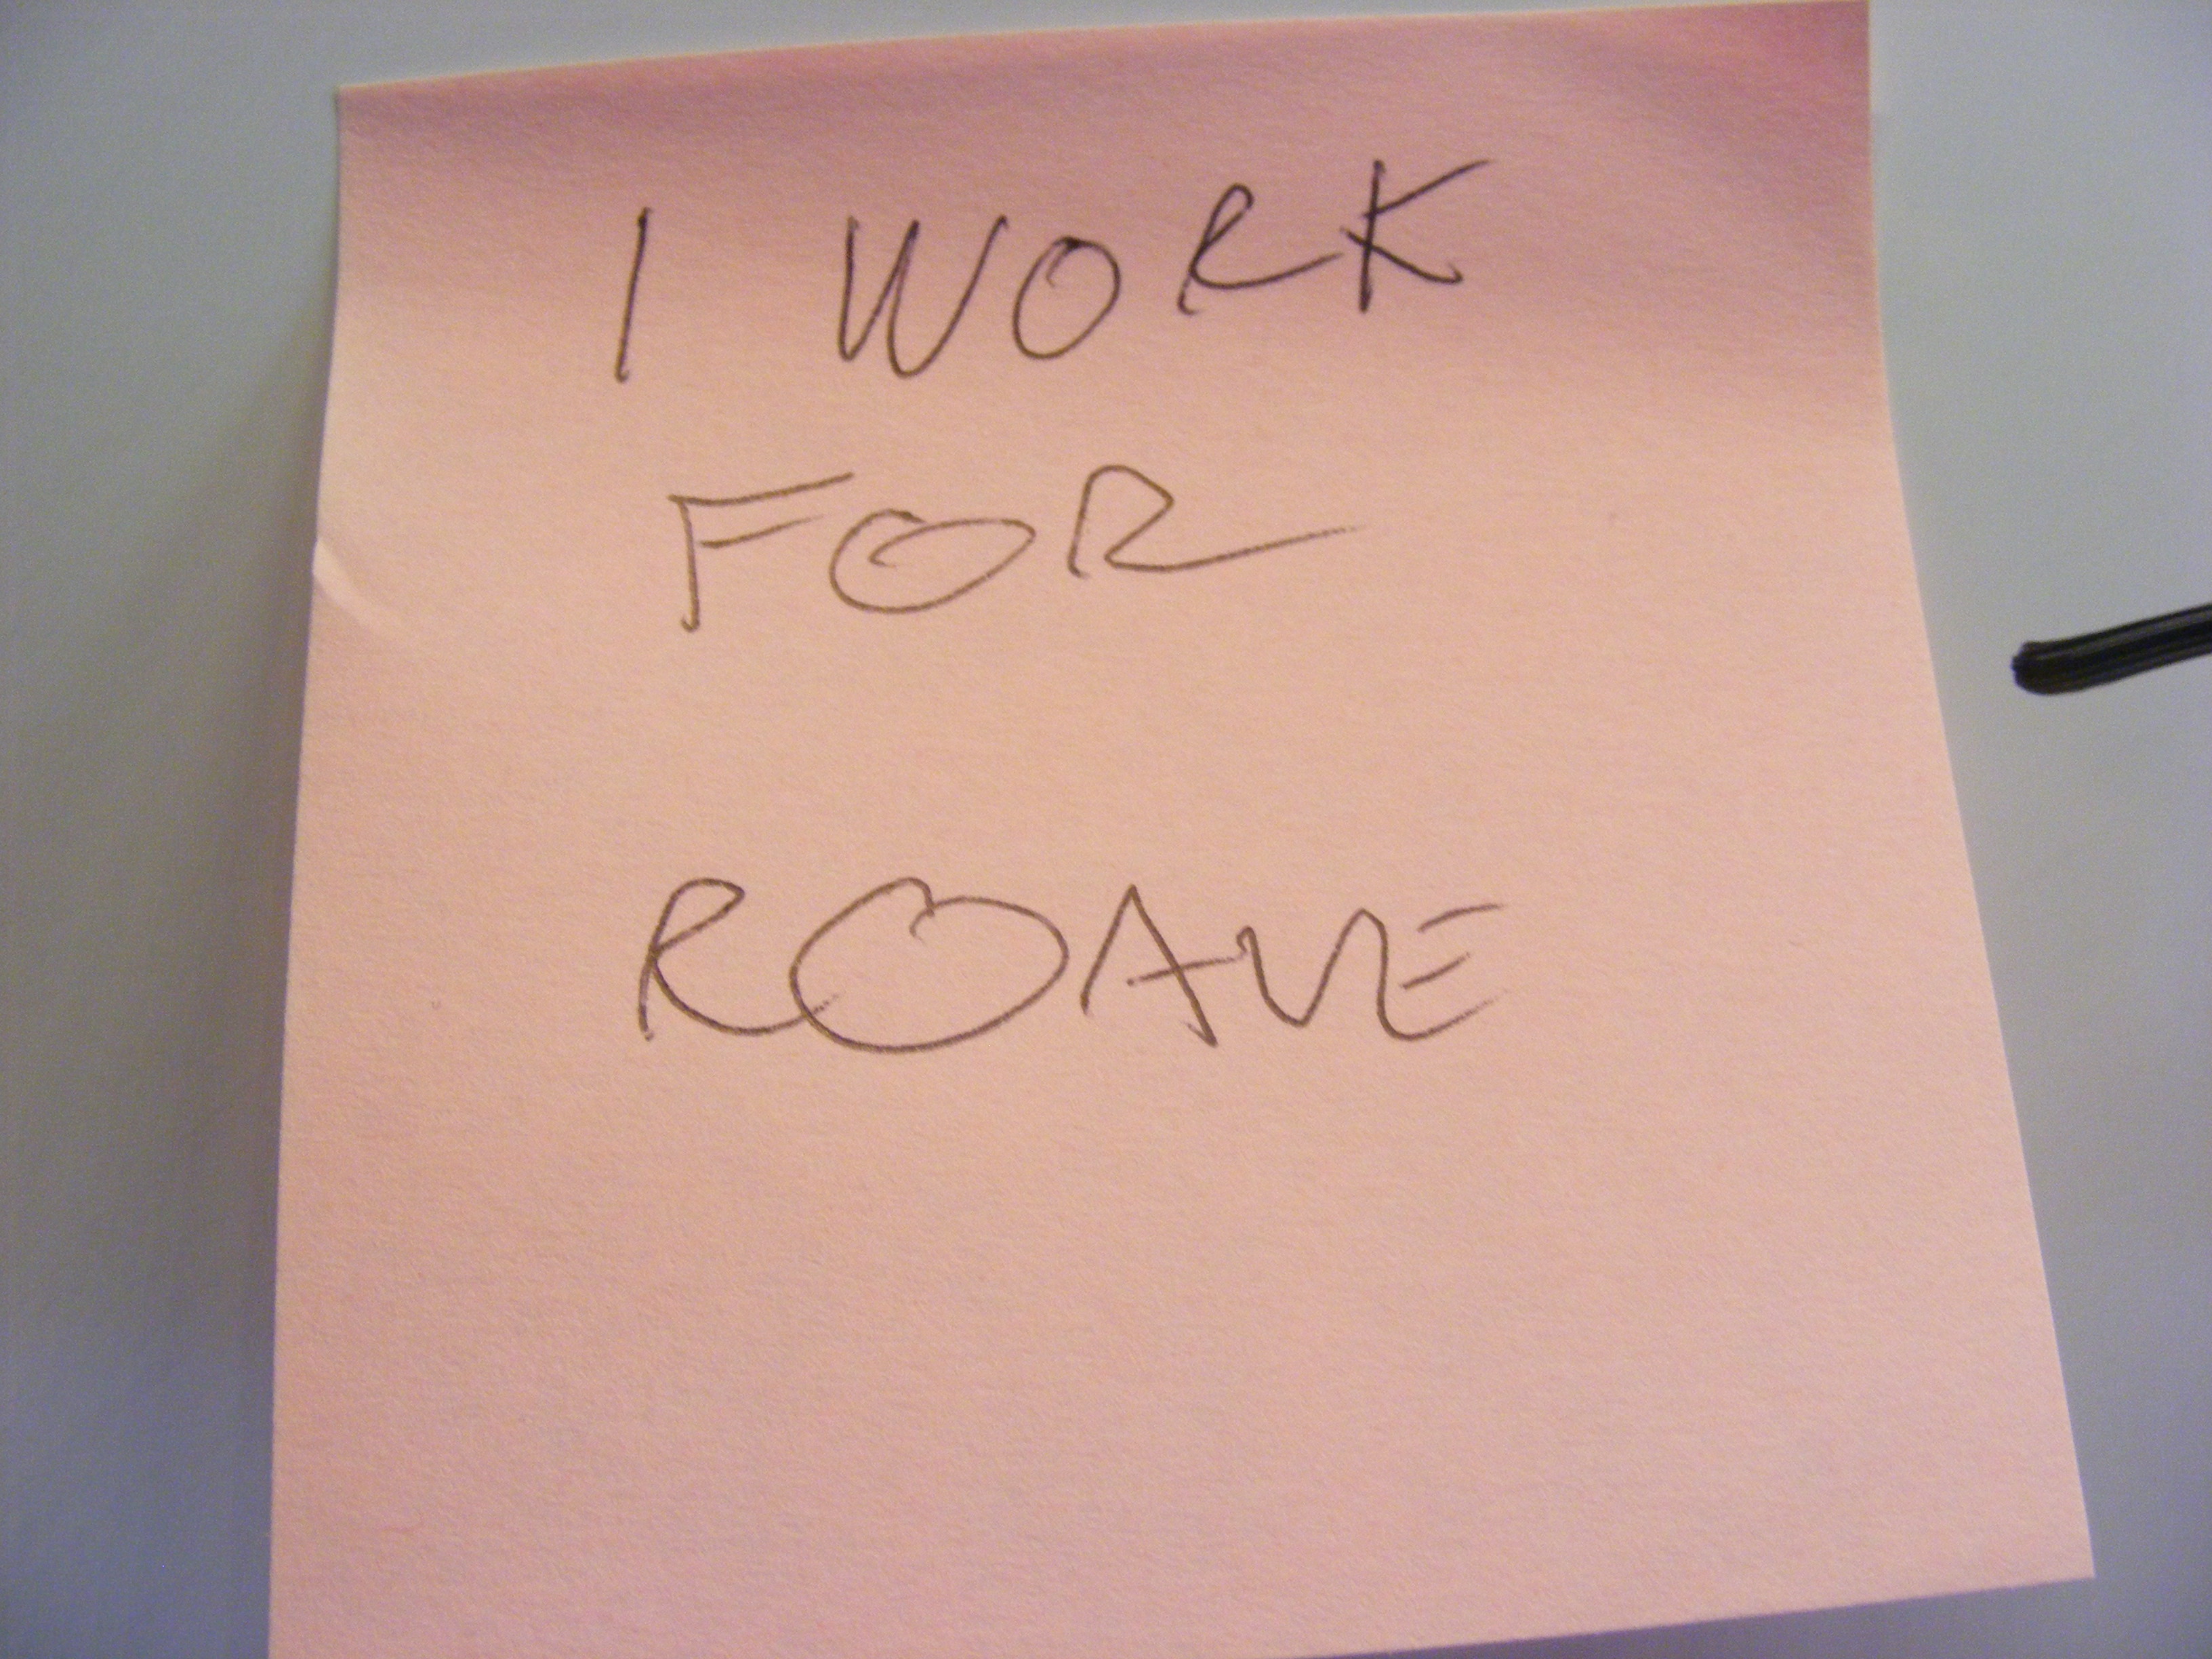 I WORK
FOR
ROAVE